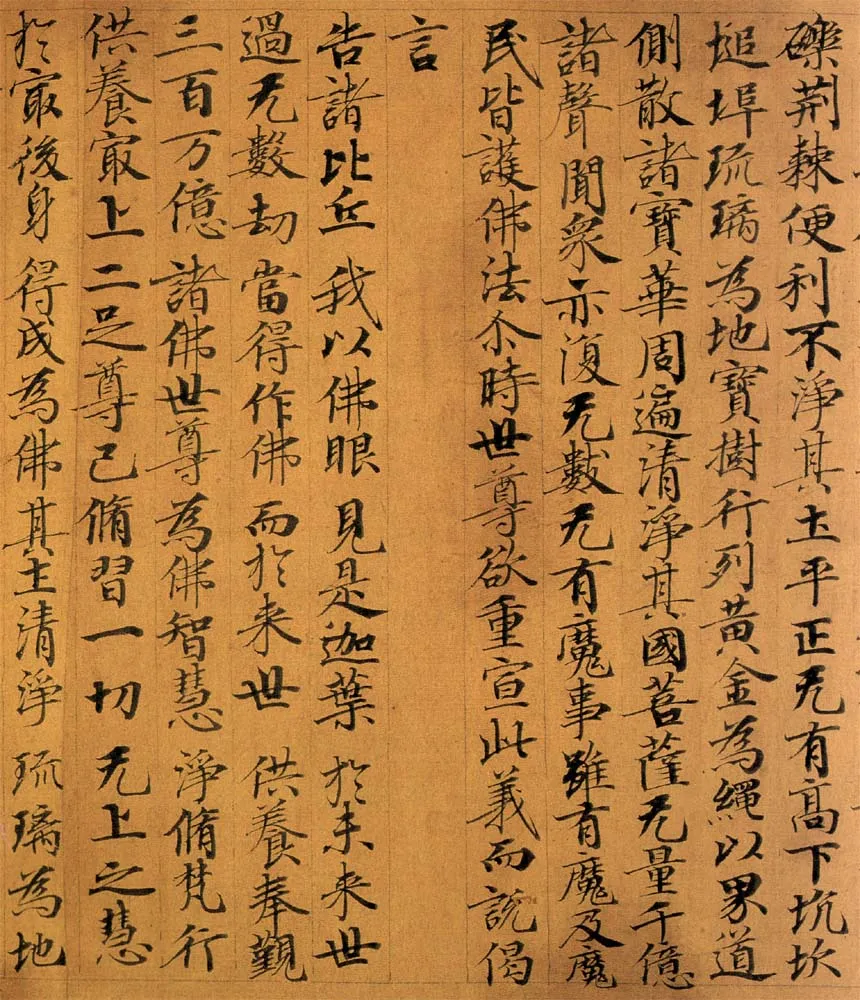 礫荆棘便利不淨其土平正无有高下坑坎
塠埠琉璃為地寶樹行列黃金為繩以界道
側散諸寶華周遍清淨其國菩薩无量千億
諸聲聞衆亦復无數无有魔事雖有魔及魔
民皆護佛法尒時世尊欲重宣此義而說偈
言
告諸比丘 我以佛眼 見是迦葉 於未来世
過无數劫 當得作佛 而於来世 供養奉覲
三百万億 諸佛世尊 為佛智慧 淨脩梵行
供養㝡上 二足尊已 脩習一切 无上之慧
於㝡後身 得成為佛 其土清淨 琉璃為地